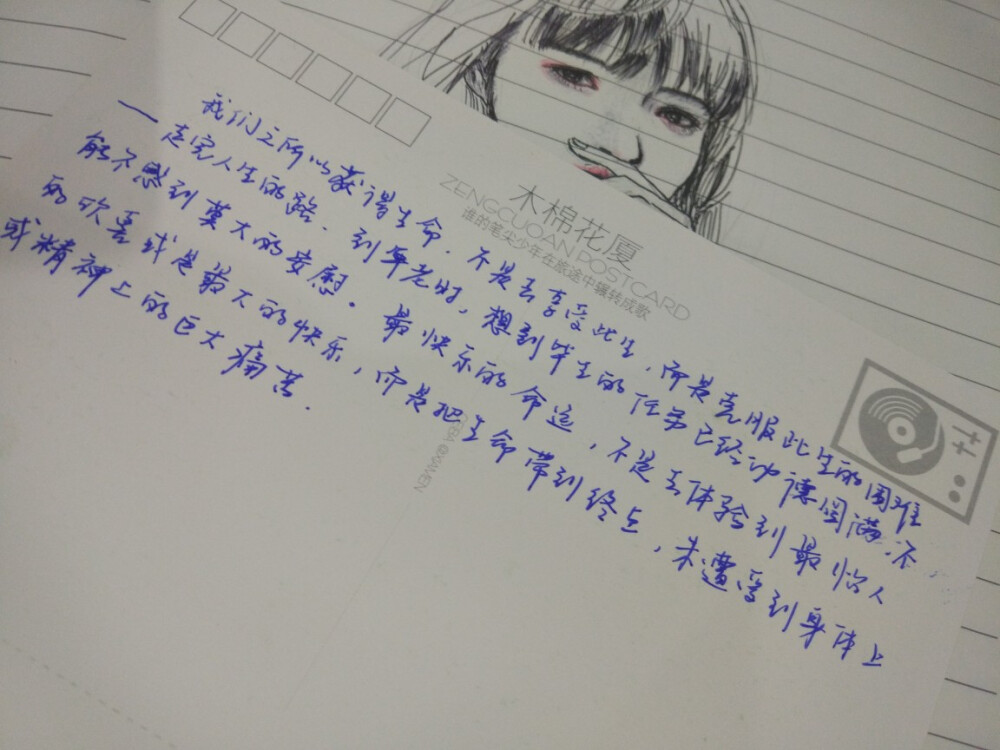 木棉花厦
ZENGCUOAN POSTCARD
谁的笔尖少年在旅途中辗转成歌
我们之所以获得生命.不是去享受此生,而是克服此生的困难
—走完人生的路.到年老时,想到毕生的任务已经功德圆满,不
能不感到莫大的安慰。最快乐的命运,不是去体验到最怡人
的欢喜或是最大的快乐,而是把生命带到终点,未遭受到身体上
或精神上的巨大痛苦.